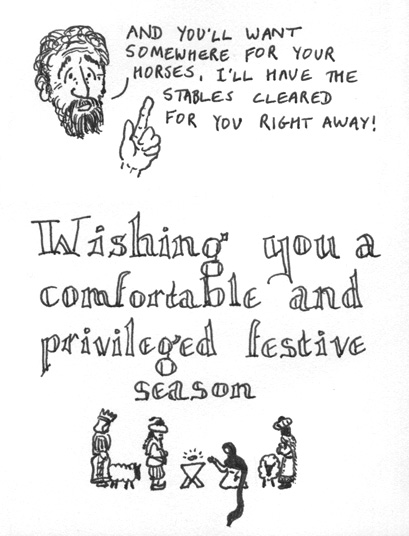 AND YOU'LL WANT
SOMEWHERE FOR YOUR
HORSES. I'LL HAVE THE
STABLES CLEARED
FOR YOU RIGHT AWAY!
Wishing you a
comfortable and
privileged festive
season